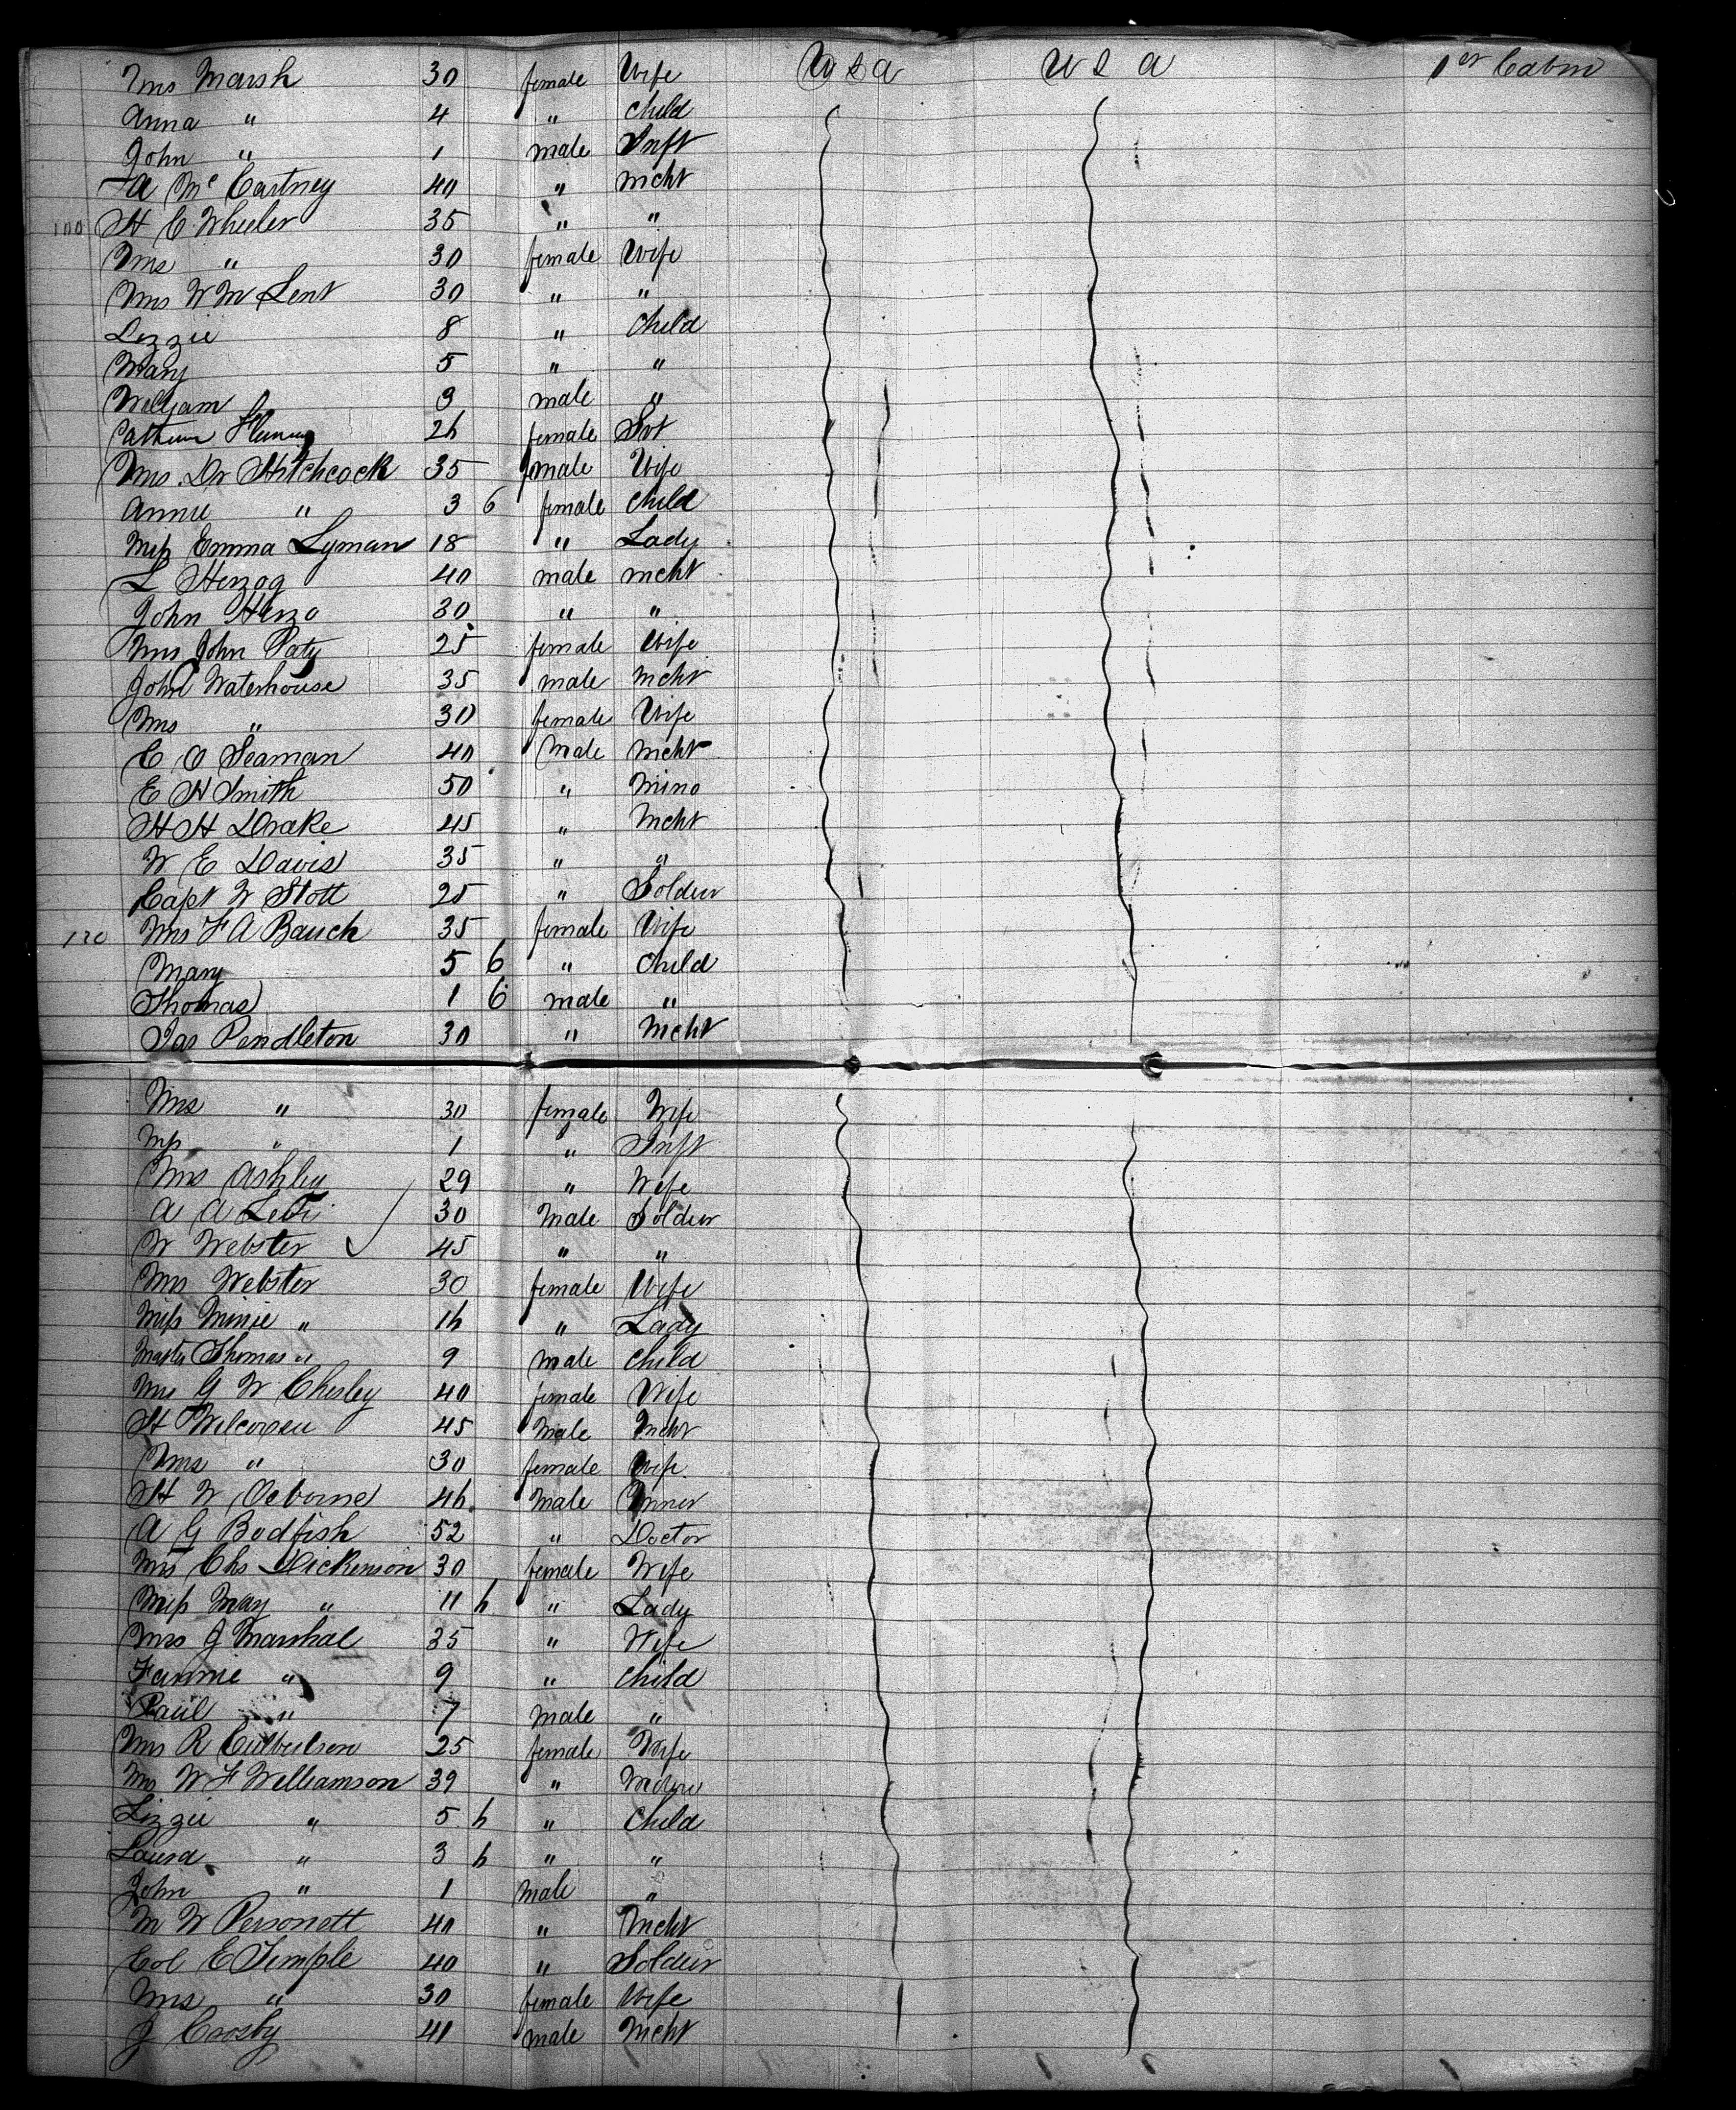 Mrs Marsh 30 female Wife U S A U S A 1st Cabin
Anna " 4 " Child
John " 1 male Inft
A McCartney 40 " Mcht
100 H C Wheeler 35 " "
Mrs " 30 female Wife
Mrs W M Lent 30 " "
Lizzie 8 " Child
Mary 5 " "
Willjam 3 male "
Fleming 26 female Svt
Mrs Dr Hitchcock 35 female Wife
Annie " 3 6 female Child
Miss Emma Lyman 18 " Lady
L Herzog 40 male mcht
John Herzo 30 " "
Mrs John Paty 25 female Wife
John Waterhouse 35 male Mcht
Mrs " 30 female Wife
C O Seaman 40 Male Mcht
E H Smith 50 " Mino
H H Drake 45 " Mcht
W E Davis 35 " "
Capt W Stott 25 " Soldier
120 Mrs F A Bauch 35 female Wife
Mary 5 6 " Child
Thomas 1 6 male "
Jas Pendleton 30 " Mcht
Mrs " 30 female Wife
Miss " 1 " Inft
Mrs Ashley 29 " Wife
A A 30 Male Soldier
W Webster 45 " "
Mrs Webster 30 female Wife
Miss Minie " 16 " Lady
Master Thomas " 9 male Child
Mrs G W Chesley 40 female Wife
H Wilcoxen 45 Male Mcht
Mrs " 30 female Wife
H W Osborne 46 Male Miner
A G Bodfish 52 " Doctor
Mrs Chs Dickenson 30 female Wife
Miss May " 11 6 " Lady
Mrs J Marshal 35 " Wife
Fannie " 9 " Child
Paul " 7 Male "
Mrs R Culbertson 25 female Wife
Mrs W F Williamson 39 "
Lizzie " 5 6 " Child
Laura " 3 6 " "
John " 1 Male "
M W Personett 40 " Mcht
Col E Temple 40 " Soldier
Mrs " 30 female Wife
J Crosby 41 male Mcht